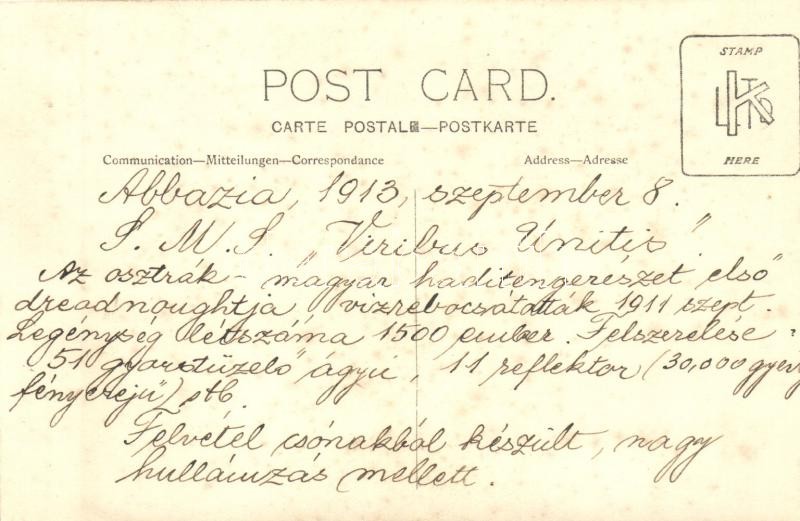 STAMP
HERE
POST CARD.
CARTE POSTALE—POSTKARTE
Communication—Mitteilungen—Correspondance Address—Adresse
Abbazia, 1913, szeptember 8.
S. M. S. „Viribus Unitis”.
Az osztrák-magyar haditengerészet első
dreadnoughtja vízrebocsátották 1911 szept.
Legénység létszáma 1500 ember. Felszerelése:
51 gyorstüzelő ágyú, 11 reflektor (30,000 gyertya
fényerejű) stb.
Felvétel csónakból készült, nagy
hullámzás mellett.